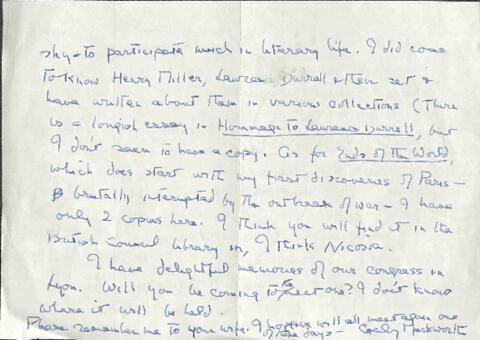 shy - to participate much in literary life. I did come
to know Henry Miller, Lawrence Durrell & their set &
have written about them in various collections (There
is a longish essay in Hommage to Lawrence Durrell, but
I don't seem to have a copy. As for Ends of the World,
which does start with my first discoveries of Paris -
brutally interrupted by the outbreak of war - I have
only 2 copies here. I think you will find it in the
British Council library in, I think Nicosia.
I have delightful memories of our congress in
Lyon. Will you be coming to the next one? I don't know
where it will be held.
Please remember me to your wife. I hope we will all meet again one
of these days - Cecily Mackworth